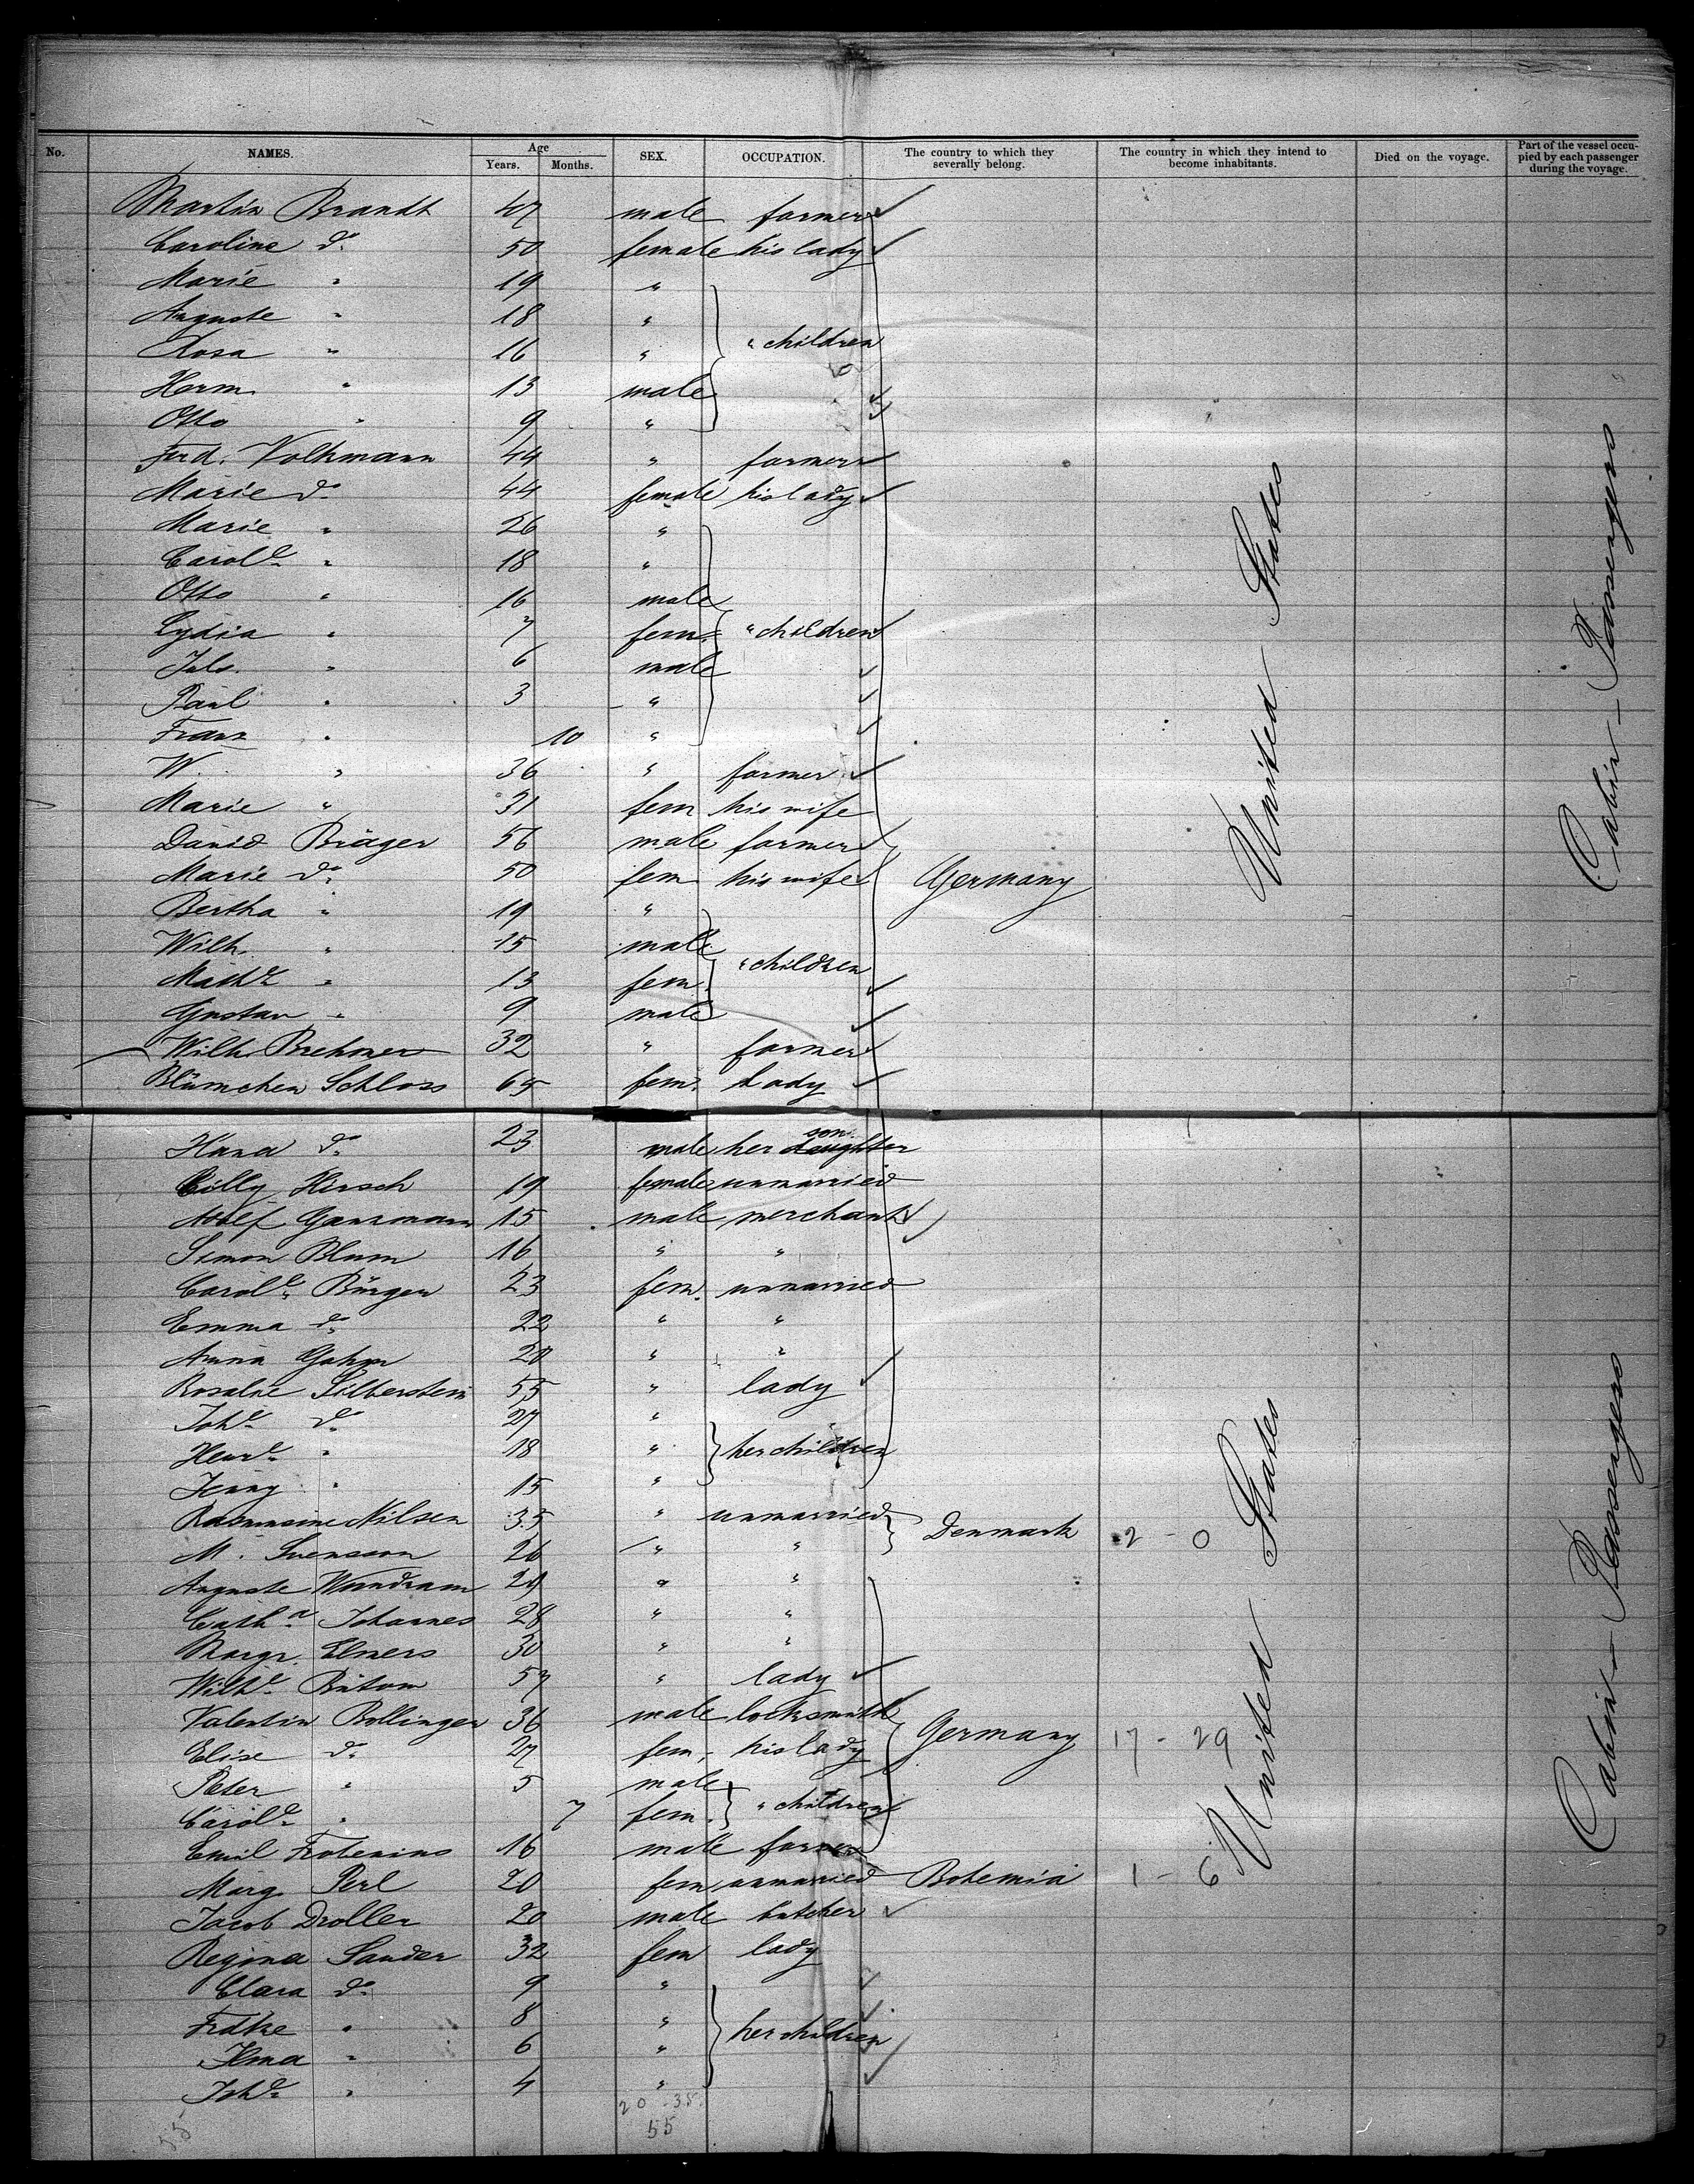 No. NAMES. Age Years. Months. SEX. OCCUPATION. The country to which they severally belong. The country in which they intend to become inhabitants. Died on the voyage. Part of the vessel occupied by each passenger during the voyage.
Martin Brandt 47 male farmer
Caroline do 50 female his lady
Marie " 19 "
Auguste " 18 "
Rosa " 16 " " children
Herm. " 13 male
Otto " 9 "
Ferd. Volkmann 44 " farmer
Marie do 44 female his lady
Marie " 26 "
Carole " 18 "
Otto " 16 male
Lydia " 7 fem. " children
Juls. " 6 male
Paul " 3 "
Franz " 10 "
W. " 36 " farmer
Marie " 31 fem his wife
David Präger 56 male farmer
Marie do 50 fem his wife Germany United States Cabin - Passengers
Bertha " 19 "
Wilh. " 15 male
Mathe " 13 fem. " children
Gustav " 9 male
Wilh. Brehmer 32 " farmer
Blümchen Schloss 65 fem. Lady
Hana do 23 male her daughter son
Cilly Hirsch 19 female unmarried
Adolf Gansmann 15 male merchant
Simon Blum 16 " "
Carole Bürger 23 fem. unmarried
Emma do 22 " "
Anna Gohm 20 " "
Rosalie Silberstein 55 " lady
Johe do 27 "
Henre " 18 " her children
Jenny " 15 "
Rasmusine Nilsen 35 " unmarried Denmark 2 - 0
M. Svensson 26 " "
Auguste Wundram 29 " "
Catha Johannes 28 " "
Margr. Elmers 30 " "
Wilhe Bütow 57 " lady
Valentin Bollinger 36 male locksmith Germany 17 - 29
Elise do 27 fem. his lady
Peter " 5 male
Carole " 7 fem. " children
Emil Frotenius 16 male farmer United States Cabin - Passengers
Marg. Perl 20 fem unmarried Bohemia 1 - 6
Jacob Droller 20 male butcher
Regina Sander 32 fem lady
Clara do 9 "
Fridke " 8 "
Ilma " 6 " her children
Johe " 4 "
20 - 35
55 55